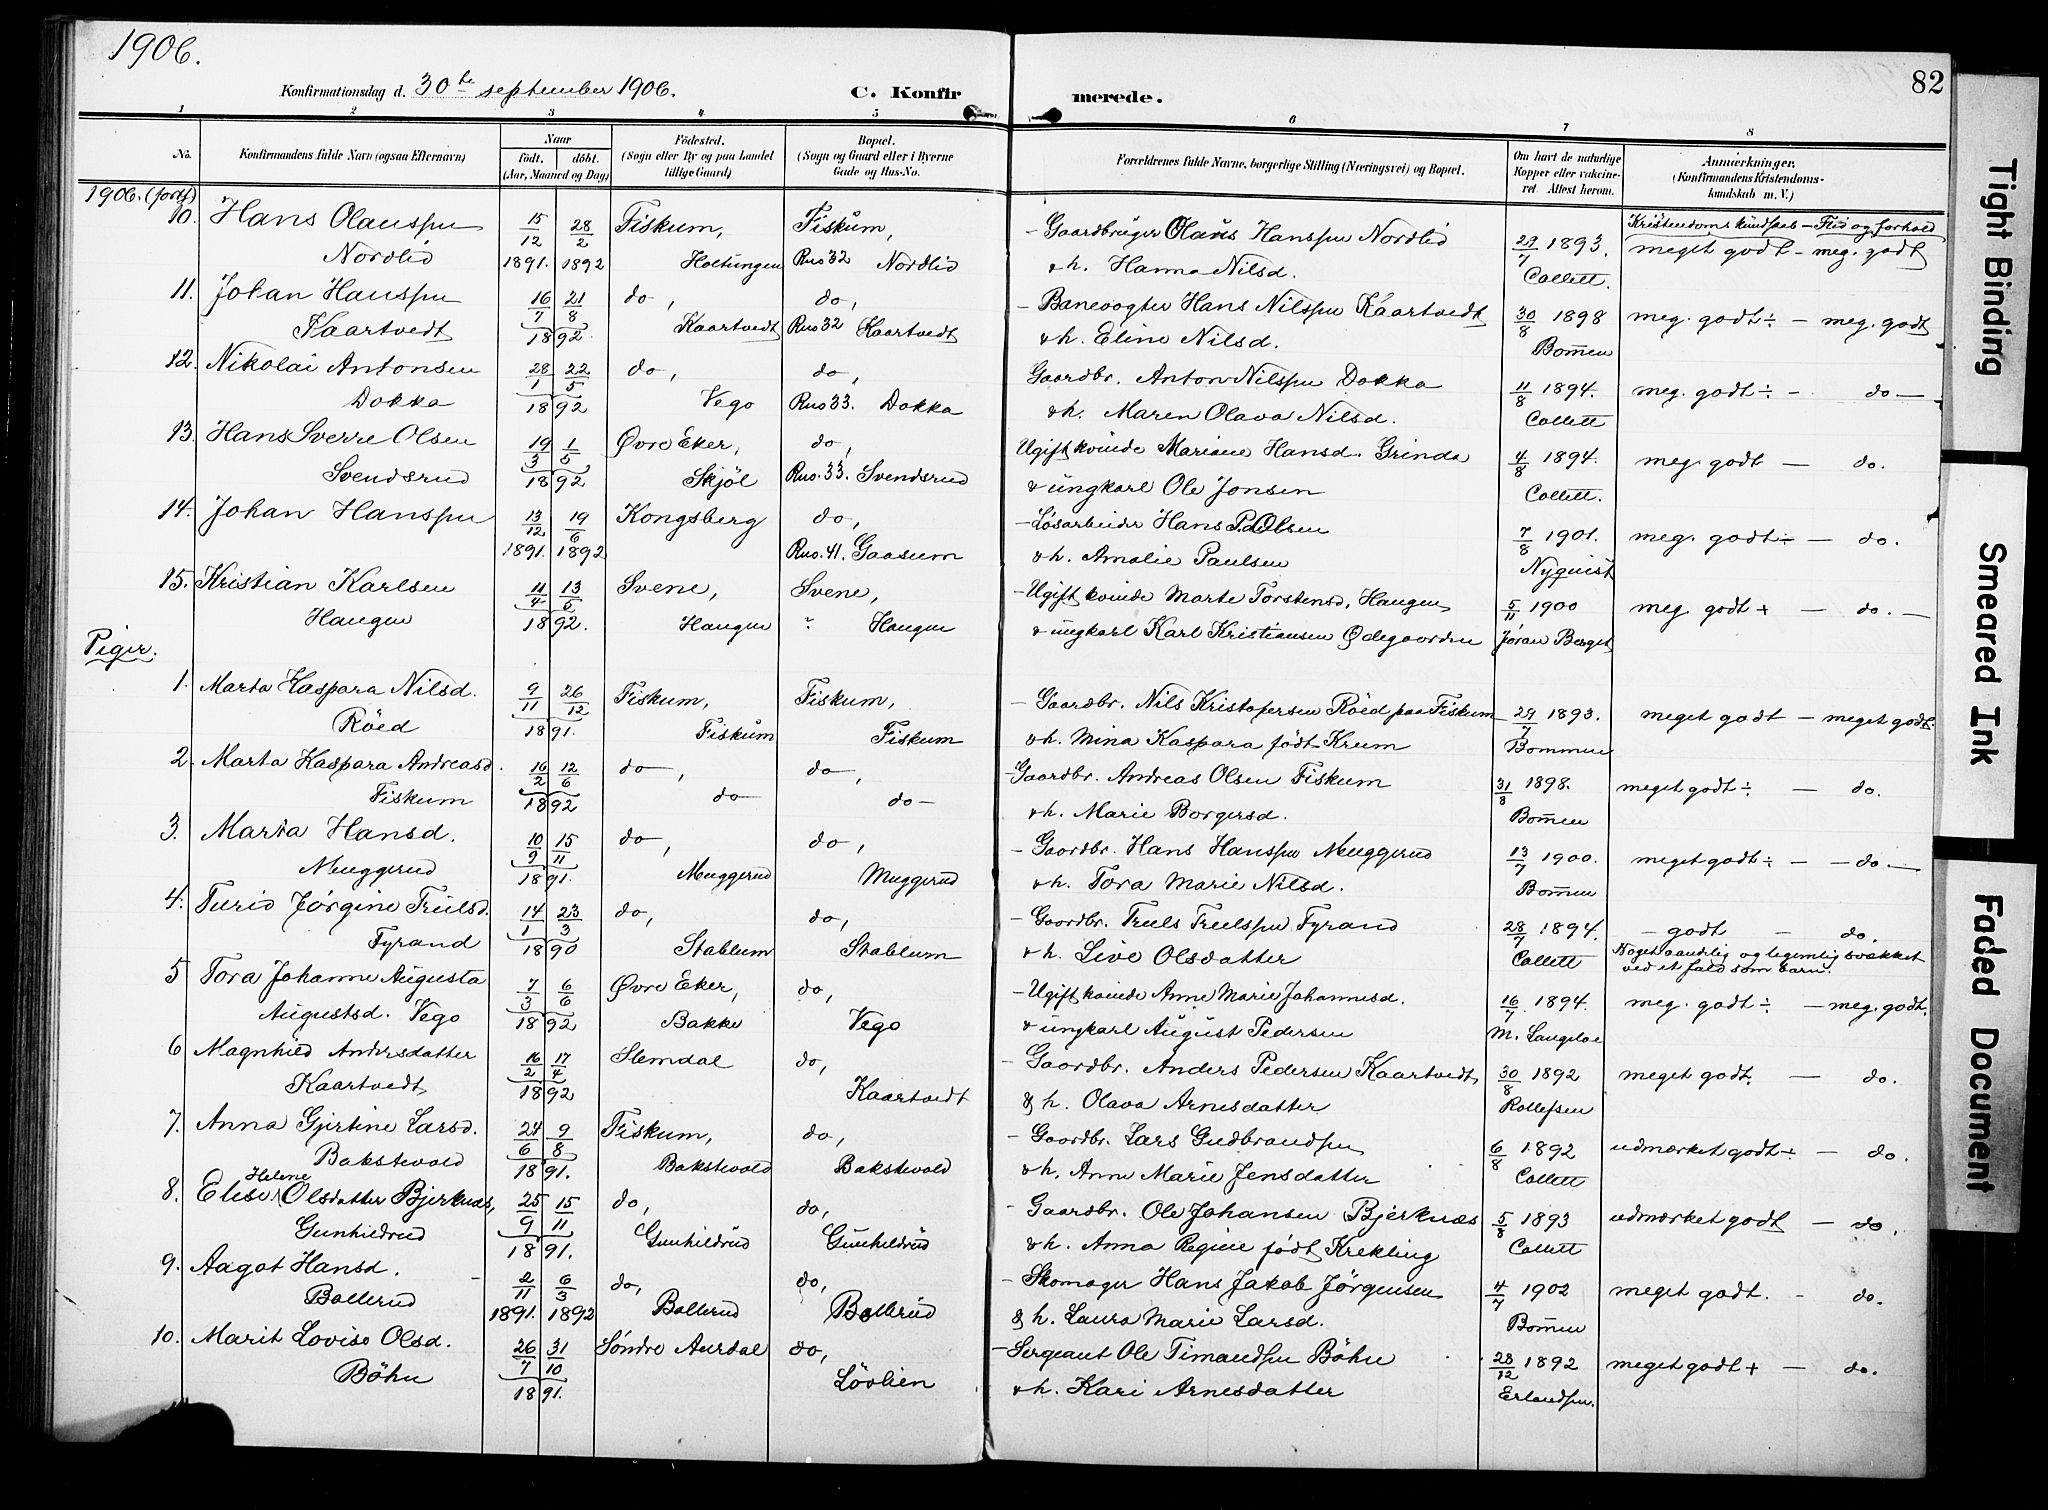 1906.
82
Konfirmationsdag d. 30te september 1906.
C. Konfir merede.
1 2 3 4 5 6 7 8
No. Konfirmandens fulde Navn (ogsaa Efternavn) Naar født. døbt. (Aar, Maaned og Dag) Födested. (Sogn eller By og paa Landet tillige Gaard) Bopæl. (Sogn og Gaard eller i Byerne Gade og Hus-No. Forældrenes fulde Navne, borgerlige Stilling (Næringsvei) og Bopæl. Om havt de naturlige Kopper eller vakcineret. Attest herom. Anmærkninger. (Konfirmandens Kristendomskundskab m. V.)
1906. (forts)
Kristendomskundskab - Flid og forhold
10. Hans Olaussen 15/12 28/2 Fiskum, Fiskum, - Gaardbruger Olaus Hanssen Nordlid 29/7 1893. meget godt - meg. godt
Nordlid 1891. 1892 Holtungen Rus 32 Nordlid & h. Hanna Nilsd. Collett.
11. Johan Hanssen 16/7 21/8 do, do, - Banevogter Hans Nilssen Kaartvedt 30/8 1898 meg. godt ÷ - meg. godt
Kaartvedt 1892. Kaartvedt Rus 32 Kaartvedt & h. Eline Nilsd. Bommen
12. Nikolai Antonsen 28/1 22/5 do, do, Gaardbr. Anton Nilssen Dokka 11/8 1894. meg. godt ÷ - do -
Dokka 1892 Vego Rus 33. Dokka & h. Maren Olava Nilsd. Collett
13. Hans Sverre Olsen 19/3 1/5 Øvre Eker, do, Ugift kvinde Mariane Hansd. Grinda 4/8 1894. meg. godt - do.
Svendsrud 1892 Skjøl Rus. 33. Svendsrud & ungkarl Ole Jonsen Collett.
14. Johan Hanssen 13/12 19/6 Kongsberg do, - Løsarbeider Hans P. Olsen 7/8 1901. meg. godt ÷ - do.
1891. 1892 Rus. 41. Gaasum & h. Amalie Paulsen Nyquist
15. Kristian Karlsen 11/4 13/5 Svene, Svene, - Ugift kvinde Marte Torstensd. Haugen 5/11 1900 meg. godt + - do. -
Haugen 1892. Haugen " Haugen & ungkarl Karl Kristiansen Ødegaarden Jøran Berget
Piger.
1. Marta Kaspara Nilsd. 9/11 26/12 Fiskum, Fiskum, - Gaardbr. Nils Kristofersen Röed paa Fiskum 29/7 1893. meget godt - meget godt.
Röed 1891. Fiskum Fiskum & h. Mina Kaspara født Krum Bommen
2. Marta Kaspara Andreasd. 16/2 12/6 do, do, - Gaardbr. Andreas Olsen Fiskum 31/8 1898. meget godt ÷ - do.
Fiskum 1892 do do - & h. Marie Borgersd. Bommen
3. Marta Hansd. 10/9 15/11 do, do, - Gaardbr. Hans Hanssen Muggerud 13/7 1900. meget godt ÷ - - do -
Muggerud 1891. Muggerud Muggerud & h. Tora Marie Nilsd. Bommen
4. Turid Jørgine Trulsd. 14/1 23/3 do, do, - Gaardbr. Truls Trulssen Fyrand 28/7 1894. - godt - do.
Fyrand 1890 Stablum Stablum & h. Live Olsdatter Collett Noget aandelig og legemlig svækket
ved et fald som barn.
5 Tora Johanne Augusta 7/3 6/6 Øvre Eker, do, - Ugift kvinde Anne Marie Johannesd. 16/7 1894. meg. godt ÷ - meg. godt.
Augustsd. Vego 1892 Bakke Vego & ungkarl August Pedersen M. Langeloe
6 Magnhild Andersdatter 16/2 17/4 Slemdal do, - Gaardbr. Anders Pedersen Kaartvedt 30/8 1892 meget godt. - do.
Kaartvedt 1892 Kaartvedt & h. Olava Arnesdatter Rollefsen
7. Anna Gjertine Larsd. 24/6 9/8 Fiskum, do, - Gaardbr. Lars Gudbrandssen 6/8 1892 udmærket godt ÷ - do.
Bakstevold 1891. Bakstevold Bakstevold & h. Anne Marie Jensdatter Collett
8. Elise Helene Olsdatter Bjerknæs, 25/9 15/11 do, do, - Gaardbr. Ole Johansen Bjerknæs 5/8 1893 udmærket godt - do.
Gunhildrud 1891. Gunhildrud Gunhildrud & h. Anna Regine født Krekling Collett
9. Aagot Hansd. - 2/11 6/3 do, do, - Skomager Hans Jakob Jörgensen 4/7 1902 meget godt. - do.
Bollerud 1891. 1892 Bollerud Bollerud & h. Laura Marie Larsd. Bommen
10. Marit Lovise Olsd. 26/7 31/10 Søndre Aurdal do, - Sergeant Ole Timandssen Böhn 28/12 1892 meget godt + - do.
Böhn 1891. Lövlien & h. Kari Arnesdatter Erlandssen.
Tight Binding
Smeared Ink
Faded Document